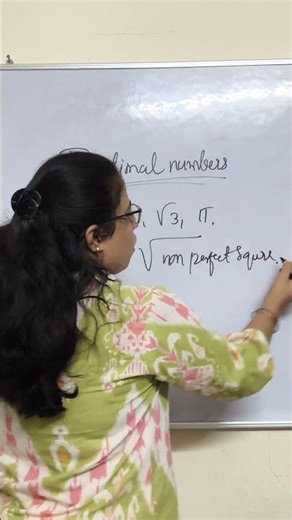 numbers
, √3, π.
√non perfect Squre.